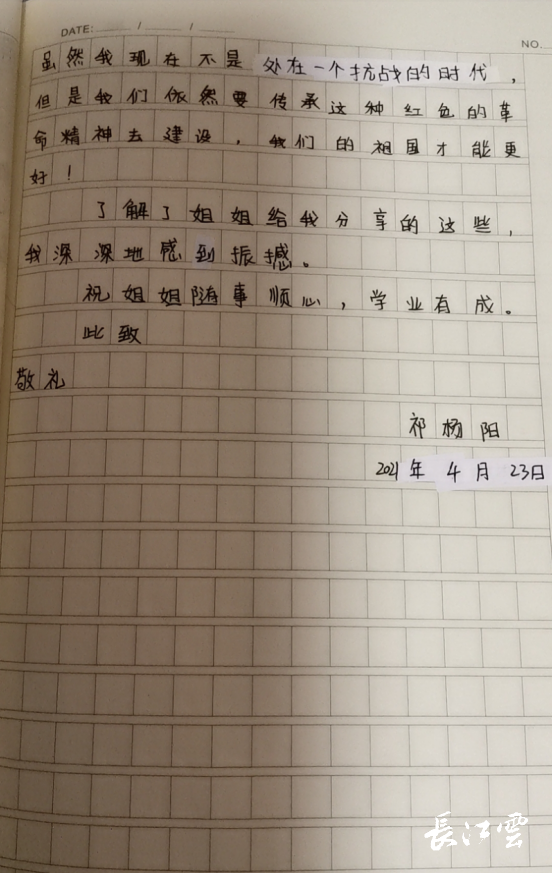 DATE: / /
NO.
虽然我现在不是处在一个抗战的时代，
但是我们依然要传承这种红色的革
命精神去建设，我们的祖国才能更
好！
了解了姐姐给我分享的这些，
我深深地感到振撼。
祝姐姐随事顺心，学业有成。
此致
敬礼
祁杨阳
2021年4月23日
長江雲